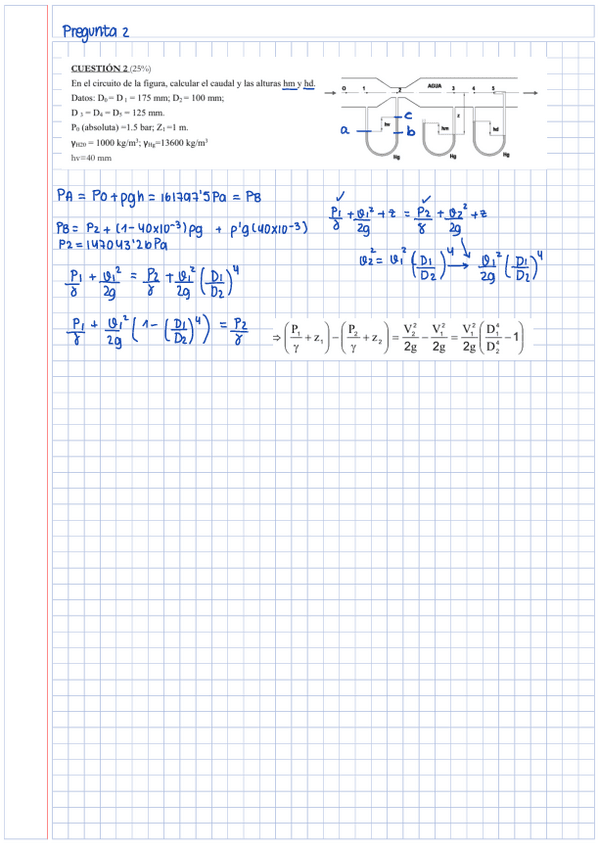 Pregunta 2
CUESTIÓN 2 (25%)
En el circuito de la figura, calcular el caudal y las alturas hm y hd.
Datos: D₀ = D₁ = 175 mm; D₂ = 100 mm;
D₃ = D₄ = D₅ = 125 mm.
P₀ (absoluta) =1.5 bar; Z₁ =1 m.
γH20 = 1000 kg/m³; γHg=13600 kg/m³
hv=40 mm
0 1 2 AGUA 3 4 5
a hv c b hm z hd
Hg Hg Hg
PA = P0 + ρgh = 161707'5 Pa = PB
PB = P2 + (1-40x10⁻³)ρg + ρ'g(40x10⁻³)
P2 = 147043'26 Pa
P1/γ + v1²/2g + z = P2/γ + v2²/2g + z
v2² = v1² (D1/D2)⁴ → v1²/2g (D1/D2)⁴
P1/γ + v1²/2g = P2/γ + v1²/2g (D1/D2)⁴
P1/γ + v1²/2g (1 - (D1/D2)⁴) = P2/γ
⇒ (P₁/γ + z₁) − (P₂/γ + z₂) = V₂²/2g − V₁²/2g = V₁²/2g (D₁⁴/D₂⁴ − 1)